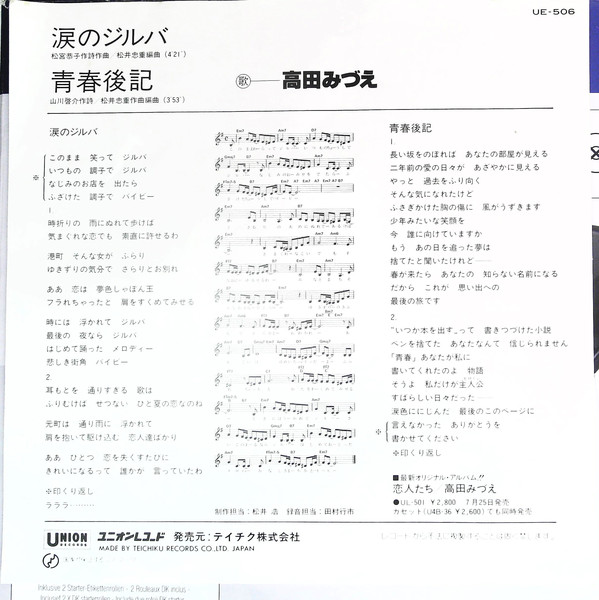 UE-506
涙のジルバ
松宮恭子作詩作曲 松井忠重編曲 (4′21″)
青春後記
山川啓介作詩 松井忠重作曲編曲 (3′53″)
歌——高田みづえ
涙のジルバ
※
このまま 笑って ジルバ
いつもの 調子で ジルバ
なじみのお店を 出たら
ふざけた 調子で バイビー
1
時折りの 雨にぬれて歩けば
気まぐれな恋でも 素直に許せるわ
港町 そんな女が ふらり
ゆきずりの気分で さらりとお別れ
ああ 恋は 夢色しゃぼん玉
フラれちゃったと 肩をすくめてみせる
時には 浮かれて ジルバ
最後の 夜なら ジルバ
はじめて踊った メロディー
悲しき街角 バイビー
2.
耳もとを 通りすぎる 歌は
ふりむけば せつない ひと夏の恋なのね
元町は 通り雨に 浮かれて
肩を抱いて駆け込む 恋人達ばかり
ああ ひとつ 恋を失くすたびに
きれいになるって 誰かが 言っていたわ
※印くり返し
ラララ………
制作担当：松井 浩 録音担当：田村行市
青春後記
1.
長い坂をのぼれば あなたの部屋が見える
二年前の愛の日々が あざやかに見える
やっと 過去をふり向く
そんな気になれたけど
ふさぎかけた胸の傷に 風がうずきます
少年みたいな笑顔を
今 誰に向けていますか
もう あの日を追った夢は
捨てたと聞いたけれど……
春が来たら あなたの 知らない名前になる
だから これが 思い出への
最後の旅です
2.
"いつか本を出す"って 書きつづけた小説
ペンを捨てた あなたなんて 信じられません
「青春」あなたが私に
書いてくれたのよ 物語
そうよ 私だけが主人公
すばらしい日々だった……
涙色ににじんだ 最後のこのページに
※
言えなかった ありがとうを
書かせてください
※印くり返し
■最新オリジナル・アルバム!!
恋人たち 高田みづえ
●UL-501 ￥2,800 7月25日発売
カセット(U4B-36 ￥2,600)でも同時発売
UNION RECORDS ユニオンレコード 発売元：テイチク株式会社
MADE BY TEICHIKU RECORDS CO., LTD. JAPAN